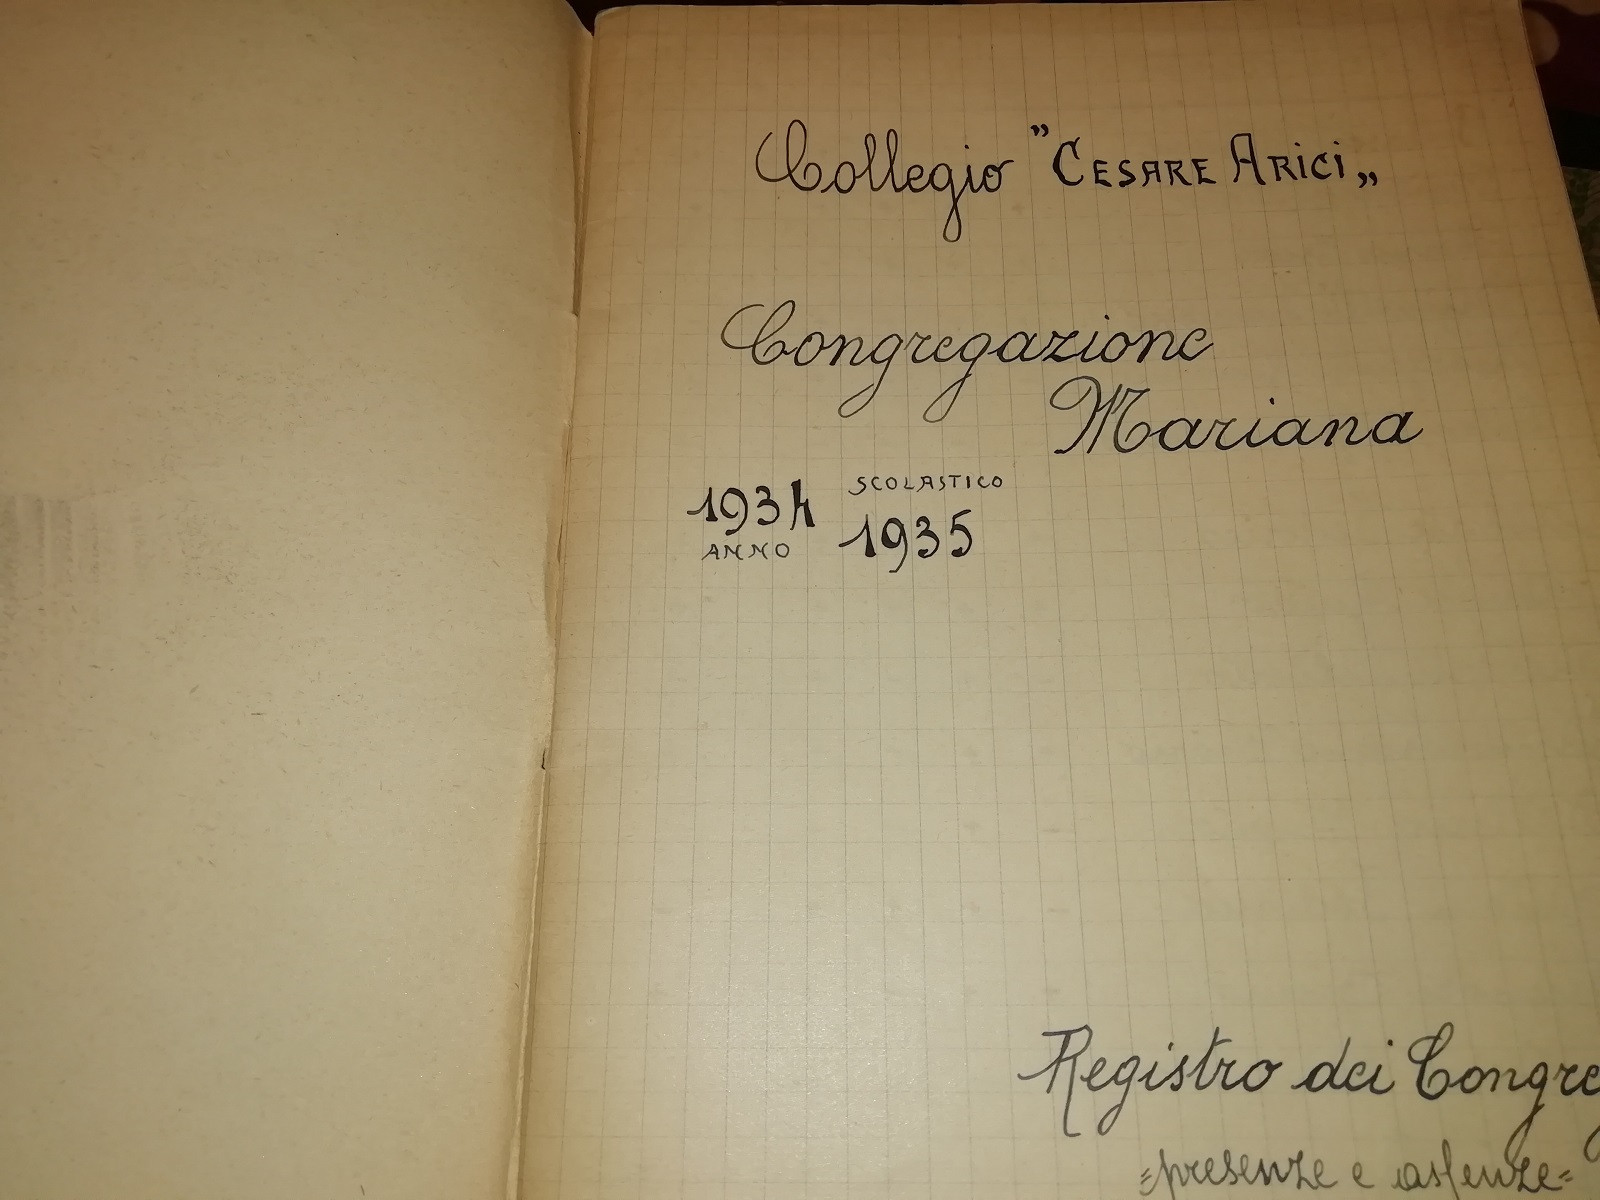 Collegio "CESARE ARICI„
Congregazione
Mariana
1934 SCOLASTICO
ANNO 1935
Registro dei Congre
=presenze e assenze=